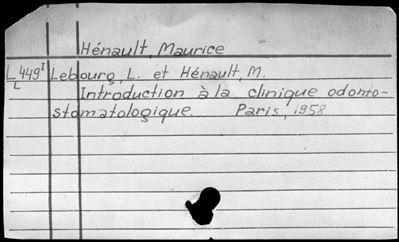 Hénault, Maurice
L449¹ Lebourg, L. et Hénault, M.
L
Introduction à la clinique odonto-
stomatologique. Paris, 1958